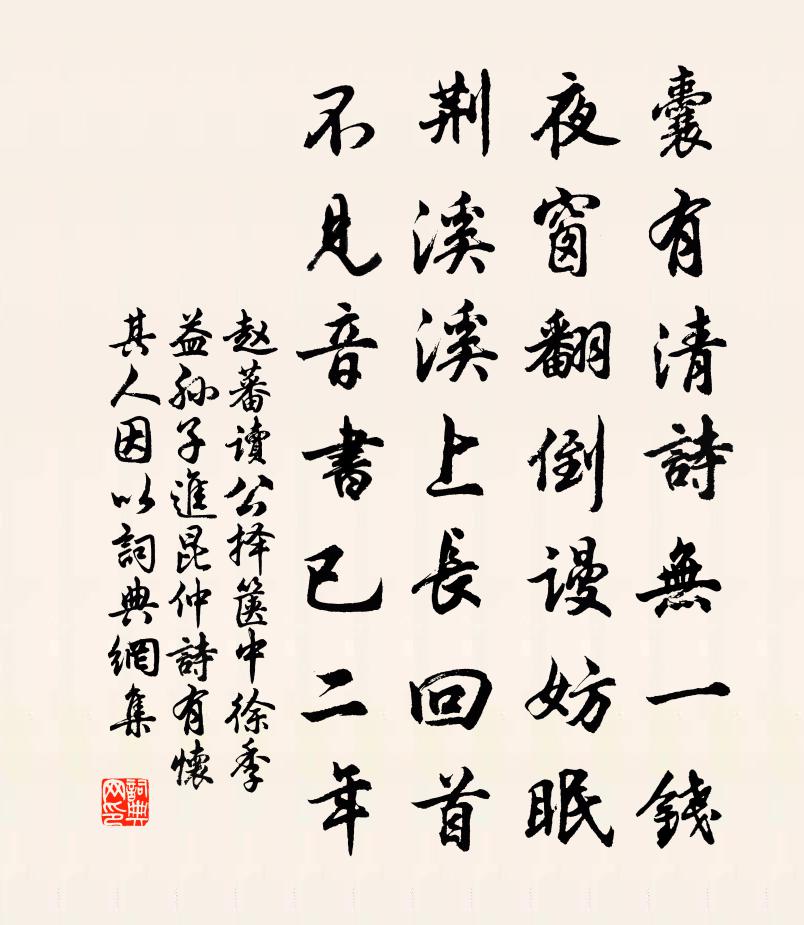 囊有清詩無一錢
夜窗翻倒謾妨眠
荆溪溪上長回首
不見音書已二年
赵蕃讀公择箧中徐季
益孙子進昆仲詩有懷
其人因以詞典網集
詞典
网印